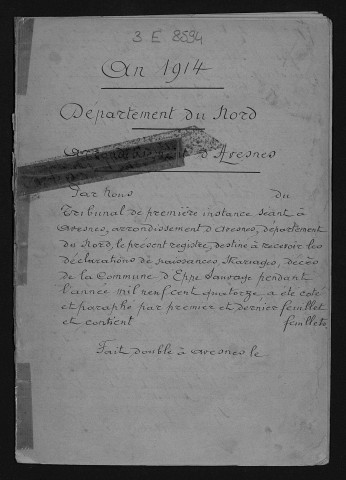 3 E 8594
An 1914
Département du Nord
d'Avesnes
Par Nous du
Tribunal de première instance séant à
Avesnes, arrondissement d'Avesnes, département
du Nord, le présent registre, destiné à recevoir les
déclarations de naissances, Mariages, décès
de la Commune d'Eppe Sauvage pendant
l'année mil neuf cent quatorze a été coté
et paraphé par premier et dernier feuillet
et contient feuillets
Fait double à Avesnes le